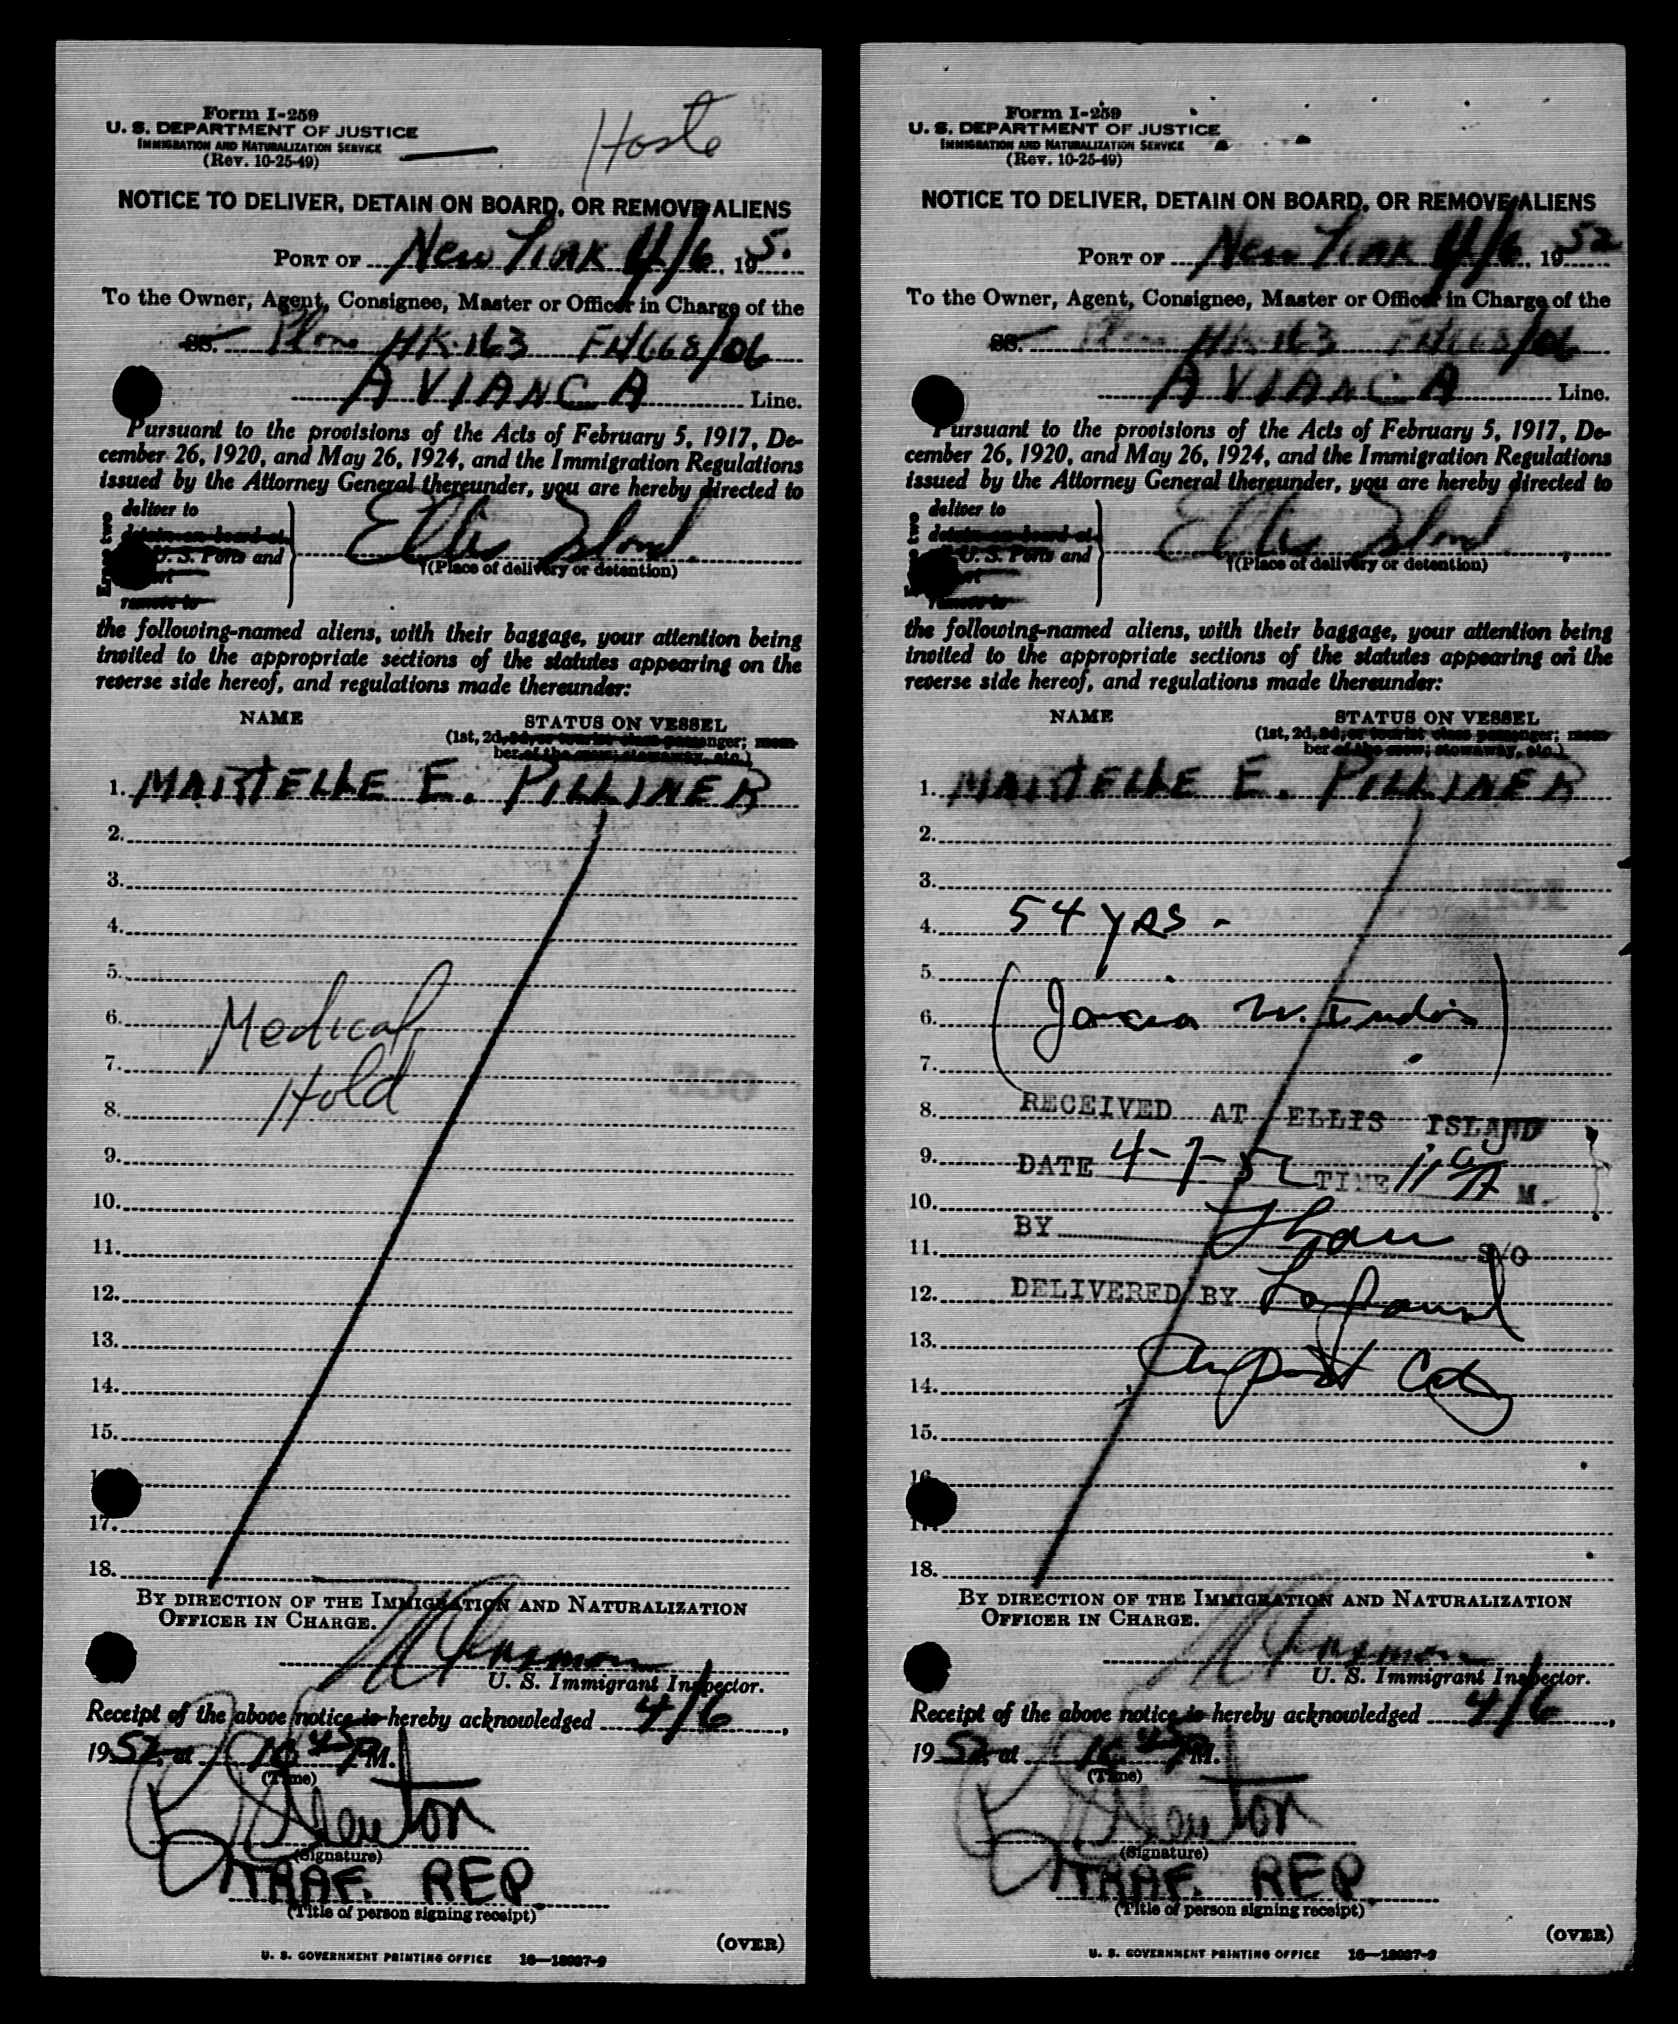 Form I-259
U. S. DEPARTMENT OF JUSTICE
IMMIGRATION AND NATURALIZATION SERVICE
(Rev. 10-25-49)
NOTICE TO DELIVER, DETAIN ON BOARD, OR REMOVE ALIENS
PORT OF New York 4/6, 195
To the Owner, Agent, Consignee, Master or Officer in Charge of the
SS. Plane HK-163 Flt 668/06
AVIANCA Line.
Pursuant to the provisions of the Acts of February 5, 1917, De-
cember 26, 1920, and May 26, 1924, and the Immigration Regulations
issued by the Attorney General thereunder, you are hereby directed to
deliver to
detain on board at
U. S. Ports and
remove to
Ellis Island.
(Place of delivery or detention)
the following-named aliens, with their baggage, your attention being
invited to the appropriate sections of the statutes appearing on the
reverse side hereof, and regulations made thereunder:
NAME STATUS ON VESSEL
(1st, 2d, 3d, or tourist class passenger; mem-
ber of the crew; stowaway, etc.)
1. MARTELLE E. PILLINER
2.
3.
4.
5.
6. Medical
7.
8. Hold
9.
10.
11.
12.
13.
14.
15.
17.
18.
BY DIRECTION OF THE IMMIGRATION AND NATURALIZATION
OFFICER IN CHARGE.
U. S. Immigrant Inspector.
Receipt of the above notice is hereby acknowledged 4/6,
1952, at 10 45 PM.
(Time)
Newton
(Signature)
TRAF. REP.
(Title of person signing receipt)
(OVER)
U. S. GOVERNMENT PRINTING OFFICE 16—18087-9
Form I-259
U. S. DEPARTMENT OF JUSTICE
IMMIGRATION AND NATURALIZATION SERVICE
(Rev. 10-25-49)
NOTICE TO DELIVER, DETAIN ON BOARD, OR REMOVE ALIENS
PORT OF New York 4/6, 1952
To the Owner, Agent, Consignee, Master or Officer in Charge of the
SS. Plane HK-163 Flt 668/06
AVIANCA Line.
Pursuant to the provisions of the Acts of February 5, 1917, De-
cember 26, 1920, and May 26, 1924, and the Immigration Regulations
issued by the Attorney General thereunder, you are hereby directed to
deliver to
detain on board at
U. S. Ports and
remove to
Ellis Island.
(Place of delivery or detention)
the following-named aliens, with their baggage, your attention being
invited to the appropriate sections of the statutes appearing on the
reverse side hereof, and regulations made thereunder:
NAME STATUS ON VESSEL
(1st, 2d, 3d, or tourist class passenger; mem-
ber of the crew; stowaway, etc.)
1. MARTELLE E. PILLINER
2.
3.
4. 54 yrs -
5.
6. (Jamaica W. Indies)
7.
8. RECEIVED AT ELLIS ISLAND
9. DATE 4-7-52 TIME A M.
10.
BY S/O
11.
12. DELIVERED BY
13.
14.
15.
16.
17.
18.
BY DIRECTION OF THE IMMIGRATION AND NATURALIZATION
OFFICER IN CHARGE.
U. S. Immigrant Inspector.
Receipt of the above notice is hereby acknowledged 4/6,
1952, at 10 45 PM.
(Time)
Newton
(Signature)
TRAF. REP.
(Title of person signing receipt)
(OVER)
U. S. GOVERNMENT PRINTING OFFICE 16—18087-9